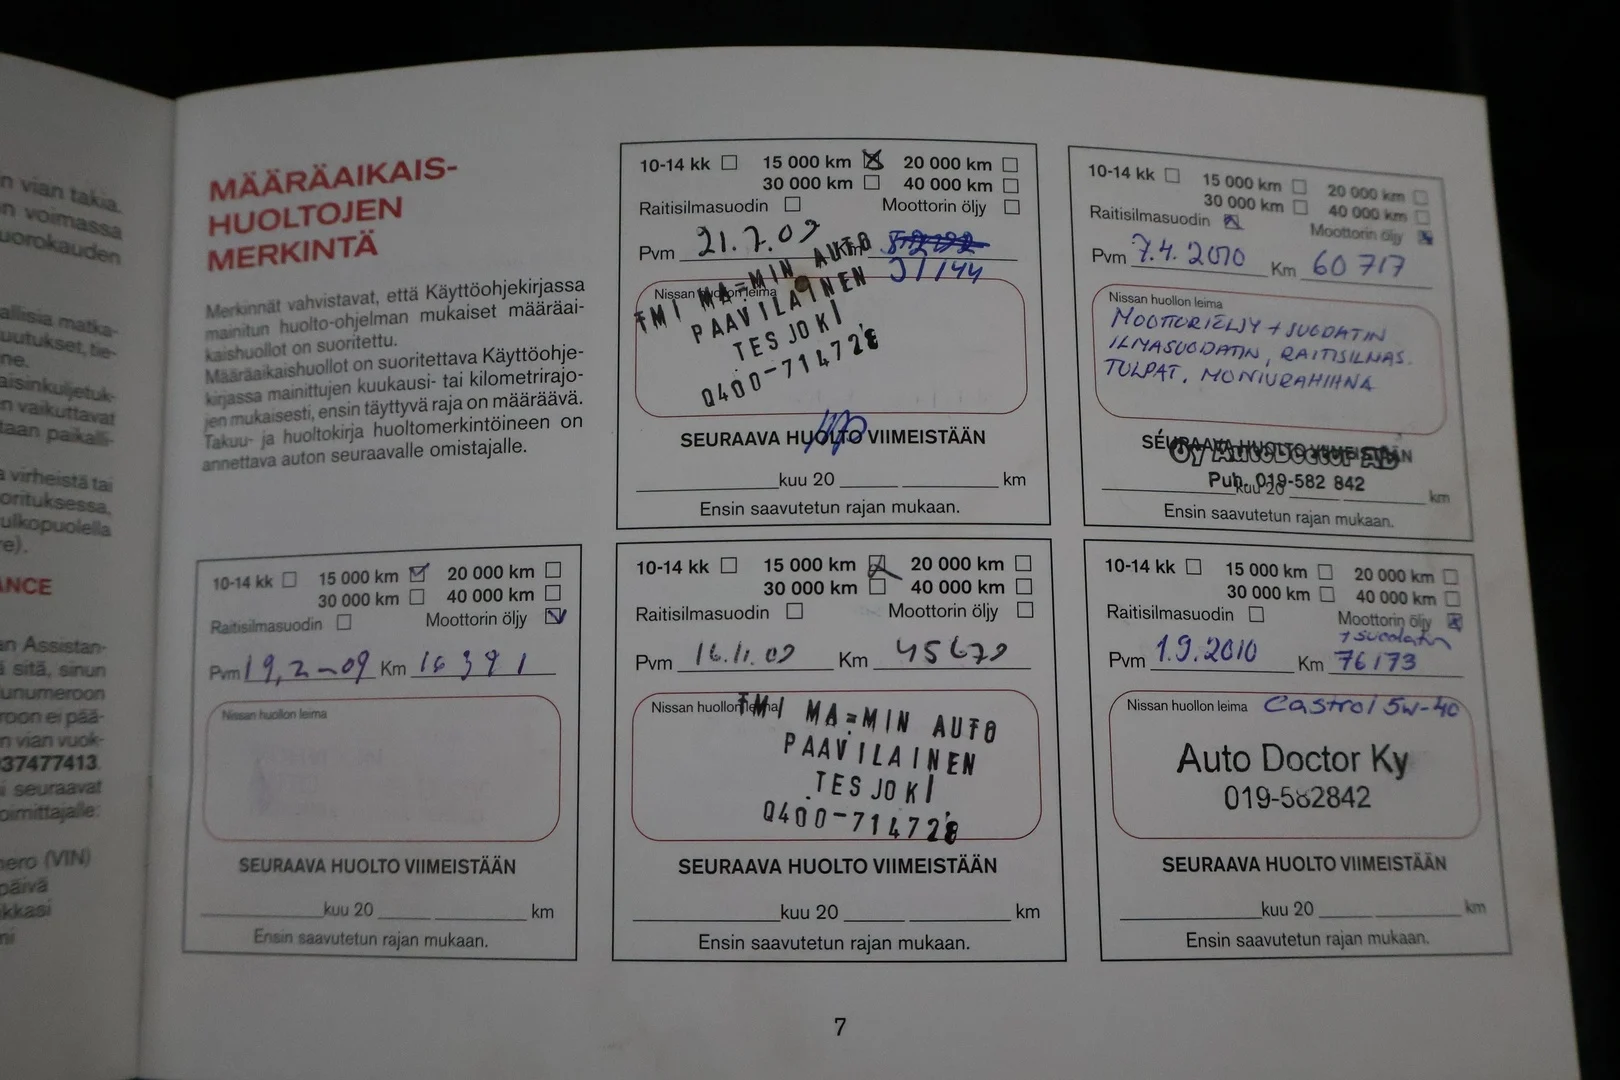 n vian takia.
n voimassa
uorokauden
allisia matka-
uutukset, tie-
ne.
aisinkuljetuk-
n vaikuttavat
taan paikalli-
a virheistä tai
orituksessa,
ulkopuolella
re).
ANCE
an Assistan-
ä sitä, sinun
lunumeroon
roon ei pää-
n vian vuok-
37477413.
i seuraavat
oimittajalle:
nero (VIN)
päivä
kkasi
mi
MÄÄRÄAIKAIS-
HUOLTOJEN
MERKINTÄ
Merkinnät vahvistavat, että Käyttöohjekirjassa
mainitun huolto-ohjelman mukaiset määräai-
kaishuollot on suoritettu.
Määräaikaishuollot on suoritettava Käyttöohje-
kirjassa mainittujen kuukausi- tai kilometrirajo-
jen mukaisesti, ensin täyttyvä raja on määräävä.
Takuu- ja huoltokirja huoltomerkintöineen on
annettava auton seuraavalle omistajalle.
10-14 kk 15 000 km 20 000 km
30 000 km 40 000 km
Raitisilmasuodin Moottorin öljy
Pvm 19,2-09 Km 16391
Nissan huollon leima
SEURAAVA HUOLTO VIIMEISTÄÄN
kuu 20 km
Ensin saavutetun rajan mukaan.
10-14 kk 15 000 km 20 000 km
30 000 km 40 000 km
Raitisilmasuodin Moottorin öljy
Pvm 21.7.09 Km
31144
Nissan huollon leima
TMI MA=MIN AUTO
PAAVILAINEN
TESJOKI
0400-714728
SEURAAVA HUOLTO VIIMEISTÄÄN
kuu 20 km
Ensin saavutetun rajan mukaan.
10-14 kk 15 000 km 20 000 km
30 000 km 40 000 km
Raitisilmasuodin Moottorin öljy
Pvm 16.11.09 Km 45679
Nissan huollon leima
TMI MA=MIN AUTO
PAAVILAINEN
TESJOKI
0400-714728
SEURAAVA HUOLTO VIIMEISTÄÄN
kuu 20 km
Ensin saavutetun rajan mukaan.
10-14 kk 15 000 km 20 000 km
30 000 km 40 000 km
Raitisilmasuodin Moottorin öljy
Pvm 7.4.2010 Km 60717
Nissan huollon leima
MOOTTORIÖLJY + SUODATIN
ILMASUODATIN, RAITISILMAS.
TULPAT, MONIURAHIHNA
SEURAAVA HUOLTO VIIMEISTÄÄN
Oy AutoDoctor AB
Puh. 019-582 842
kuu 20 km
Ensin saavutetun rajan mukaan.
10-14 kk 15 000 km 20 000 km
30 000 km 40 000 km
Raitisilmasuodin Moottorin öljy
+ suodatin
Pvm 1.9.2010 Km 76173
Nissan huollon leima Castrol 5w-40
Auto Doctor Ky
019-582842
SEURAAVA HUOLTO VIIMEISTÄÄN
kuu 20 km
Ensin saavutetun rajan mukaan.
7